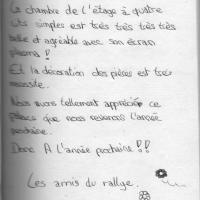 La chambre de l'étage à quatre
lits simples est très très très très
belle et agréable avec son écran
plasma !
Et la décoration des pièces est très
réussite.
Nous avons tellement apprécier ce
que nous reviendrons l'année
prochaine.
Donc A l'année prochaine !!
Les amis du rallye.